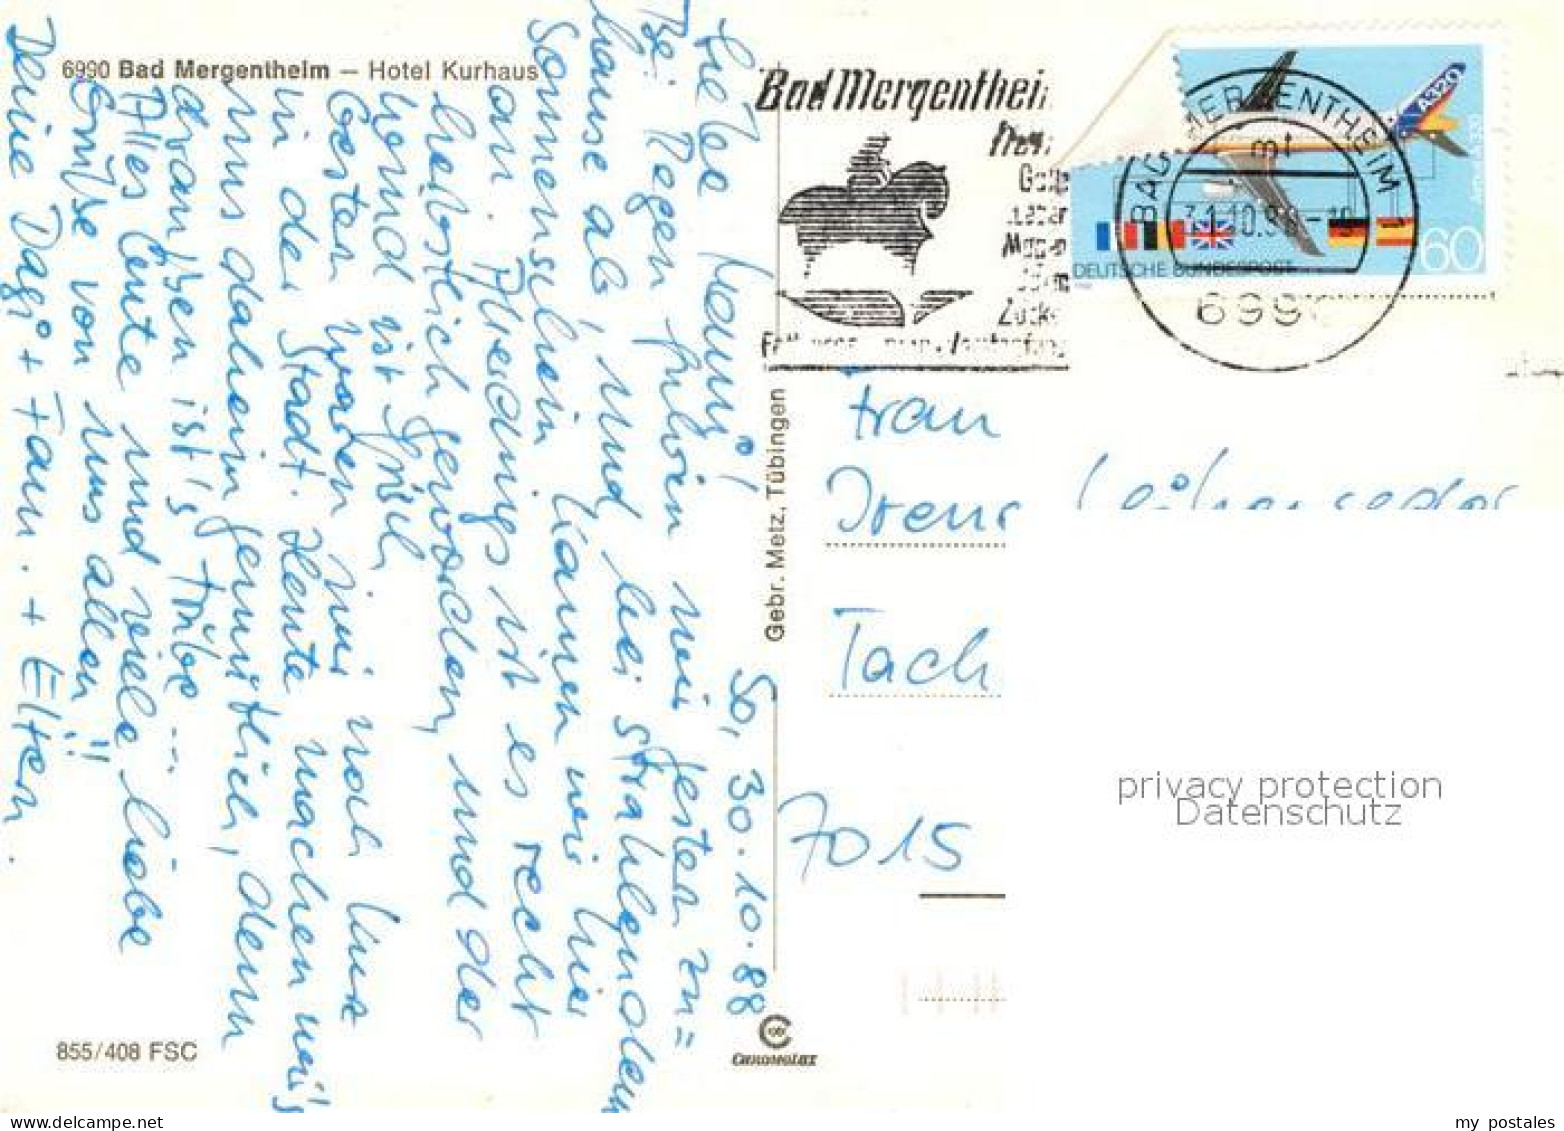 6990 Bad Mergentheim — Hotel Kurhaus
So, 30.10.88
Liebe Hanni!
Bei Regen fuhren wir gestern zu=
hause ab, und bei strahlendem
Sonnenschein kamen wir hier
an. Allerdings ist es recht
herbstlich geworden, und der
Hornd ist frisch
Gestern waren wir noch kurz
in der Stadt. Heute machen wir's
uns daheim gemütlich, denn
draußen ist's trübe ...
Alles Gute und viele liebe
Grüße von uns allen!!
Deine Dagi + Fam. + Eltern.
855/408 FSC
Gebr. Metz, Tübingen
CHROMOLUX
Bad Mergenthei
A320
DEUTSCHE BUNDESPOST
60
MERGENTHEIM
mt
10.88
699
Frau
Irene
Tach
7015
privacy protection
Datenschutz
my postales